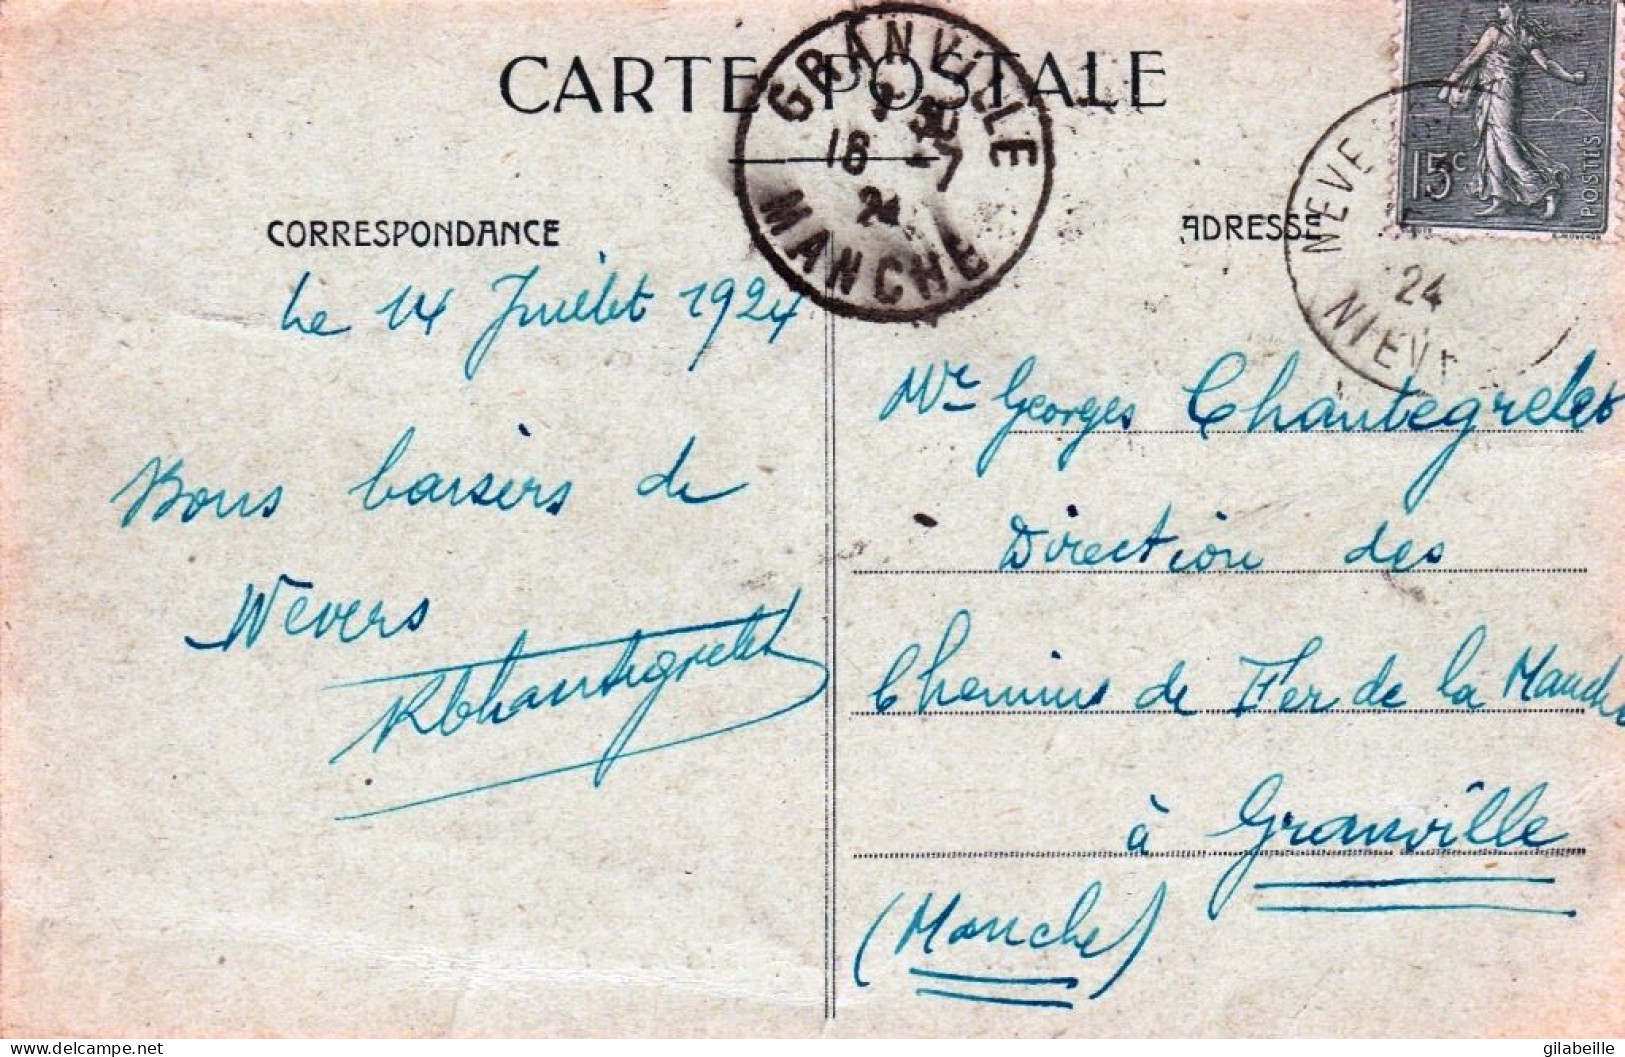 CARTE POSTALE
GRANVILLE
7 30
16 -7
24
MANCHE
15c
POSTES
NEVE
24
NIEV
CORRESPONDANCE
ADRESSE
Le 14 Juillet 1924
Bons baisers de
Nevers
Mr Georges Chantegrelet
Direction des
Chemins de Fer de la Manche
à Granville
(Manche)
gilabeille